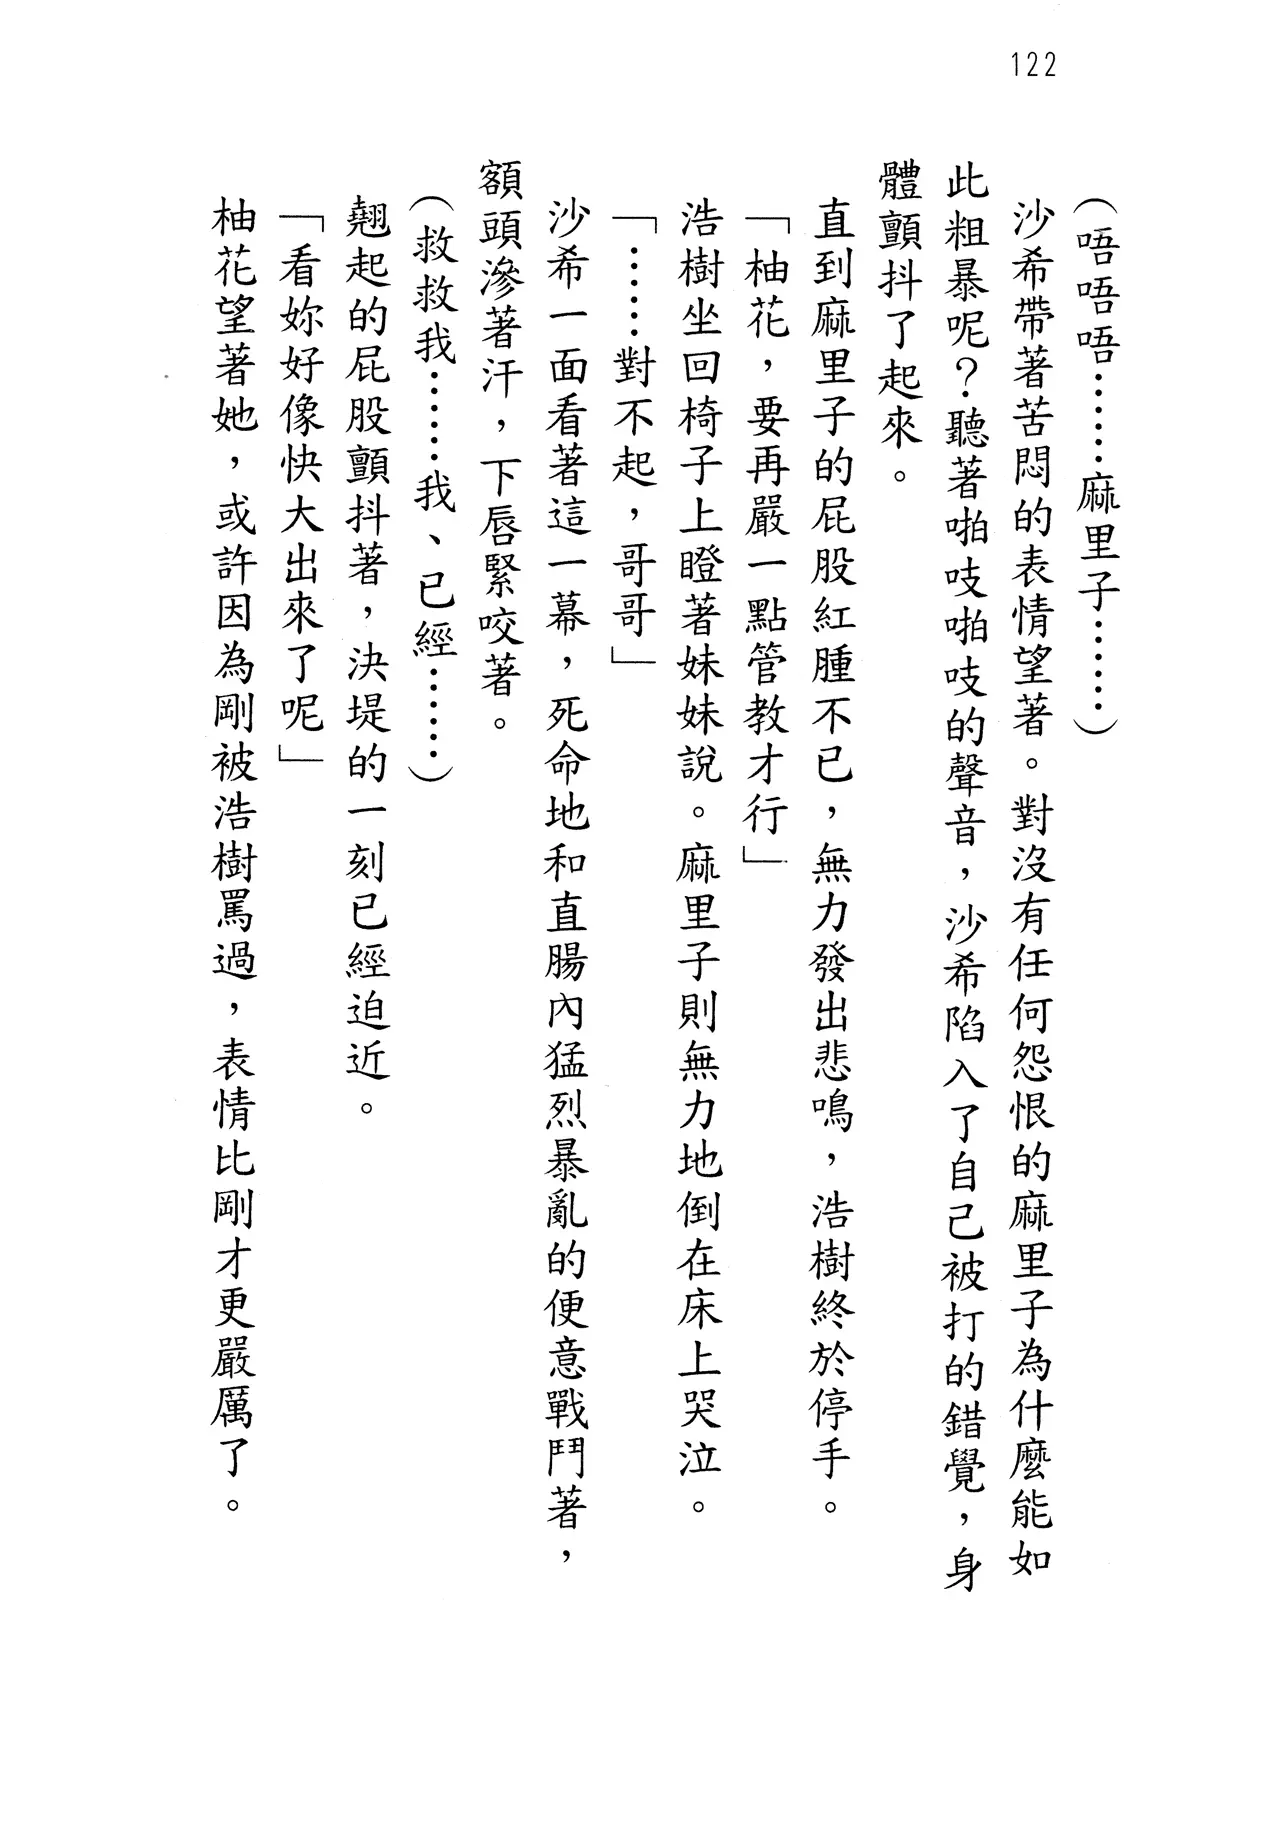 122
（唔唔唔……麻里子……）
沙希帶著苦悶的表情望著。對沒有任何怨恨的麻里子為什麼能如
此粗暴呢？聽著啪吱啪吱的聲音，沙希陷入了自己被打的錯覺，身
體顫抖了起來。
直到麻里子的屁股紅腫不已，無力發出悲鳴，浩樹終於停手。
「柚花，要再嚴一點管教才行」
浩樹坐回椅子上瞪著妹妹說。麻里子則無力地倒在床上哭泣。
「……對不起，哥哥」
沙希一面看著這一幕，死命地和直腸內猛烈暴亂的便意戰鬥著，
額頭滲著汗，下唇緊咬著。
（救救我……我、已經……）
翹起的屁股顫抖著，決堤的一刻已經迫近。
「看妳好像快大出來了呢」
柚花望著她，或許因為剛被浩樹罵過，表情比剛才更嚴厲了。